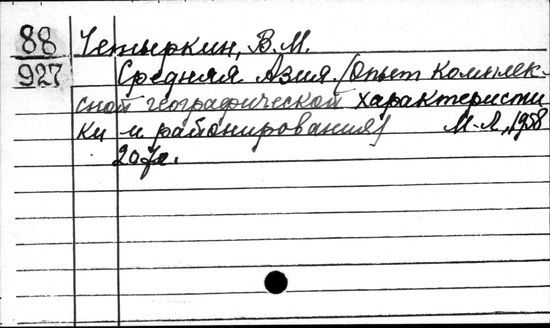 88 Четыркин, В.М.
927 Средняя Азия. (Опыт комплек-
сной географической характеристи
ки и районирования) М-Л, 1958
207л.